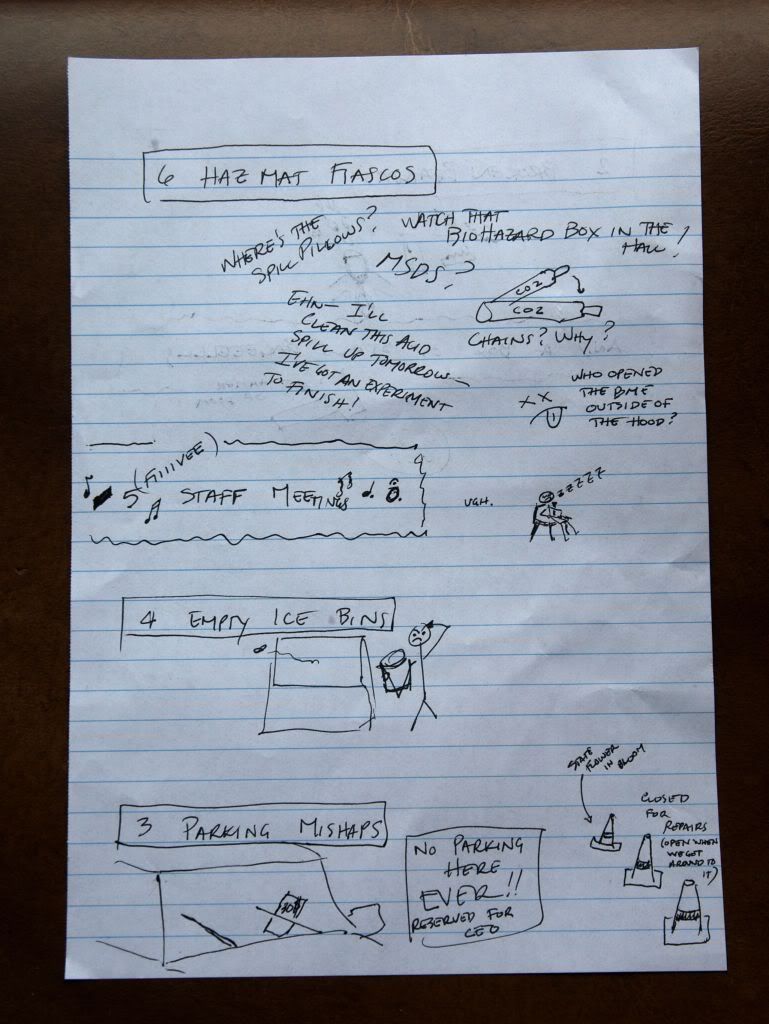 6 HAZ MAT FIASCOS
WHERE'S THE
SPILL PILLOWS?
WATCH THAT
BIOHAZARD BOX IN THE
HALL!
MSDS?
CO2
CO2
CHAINS? WHY?
EHN— I'LL
CLEAN THIS ACID
SPILL UP TOMORROW—
I'VE GOT AN EXPERIMENT
TO FINISH!
WHO OPENED
THE BME
OUTSIDE OF
THE HOOD?
5 (FIIIIVEE)
STAFF MEETINGS
UGH.
ZZZZZ
4 EMPTY ICE BINS
3 PARKING MISHAPS
NO PARKING
HERE
EVER!!
RESERVED FOR
CEO
STATE
FLOWER
IN BLOOM
CLOSED
FOR
REPAIRS
(OPEN WHEN
WE GET
AROUND TO
IT)